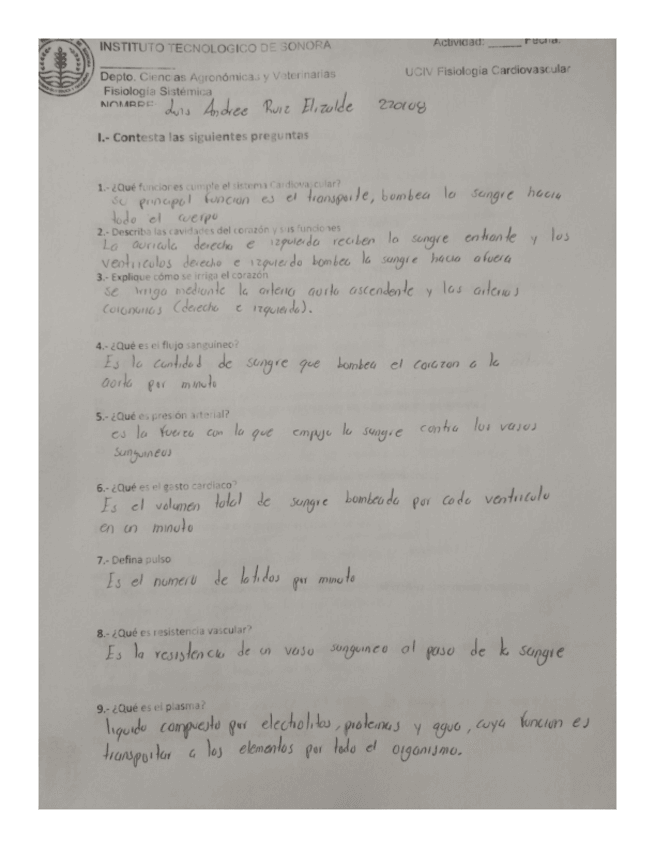 INSTITUTO TECNOLOGICO DE SONORA
Actividad: ______ Fecha:
Depto. Ciencias Agronómicas y Veterinarias
UCIV Fisiología Cardiovascular
Fisiología Sistémica
NOMBRE: Luis Andree Ruiz Elizalde 220108
I.- Contesta las siguientes preguntas
1.- ¿Qué funciones cumple el sistema Cardiovascular?
Su principal funcion es el transporte, bombea la sangre hacia
todo el cuerpo
2.- Describa las cavidades del corazón y sus funciones
La auricula derecha e izquierda reciben la sangre entrante y los
ventriculos derecho e izquierdo bombea la sangre hacia afuera
3.- Explique cómo se irriga el corazón
Se irriga mediante la arteria aorta ascendente y las arterias
coronarias (derecha e izquierda).
4.- ¿Qué es el flujo sanguíneo?
Es la cantidad de sangre que bombea el corazon a la
aorta por minuto
5.- ¿Qué es presión arterial?
es la fuerza con la que empuja la sangre contra los vasos
sanguineos
6.- ¿Qué es el gasto cardiaco?
Es el volumen total de sangre bombeada por cada ventriculo
en un minuto
7.- Defina pulso
Es el numero de latidos por minuto
8.- ¿Qué es resistencia vascular?
Es la resistencia de un vaso sanguineo al paso de la sangre
9.- ¿Qué es el plasma?
liquido compuesto por electrolitos, proteinas y agua, cuya funcion es
transportar a los elementos por todo el organismo.